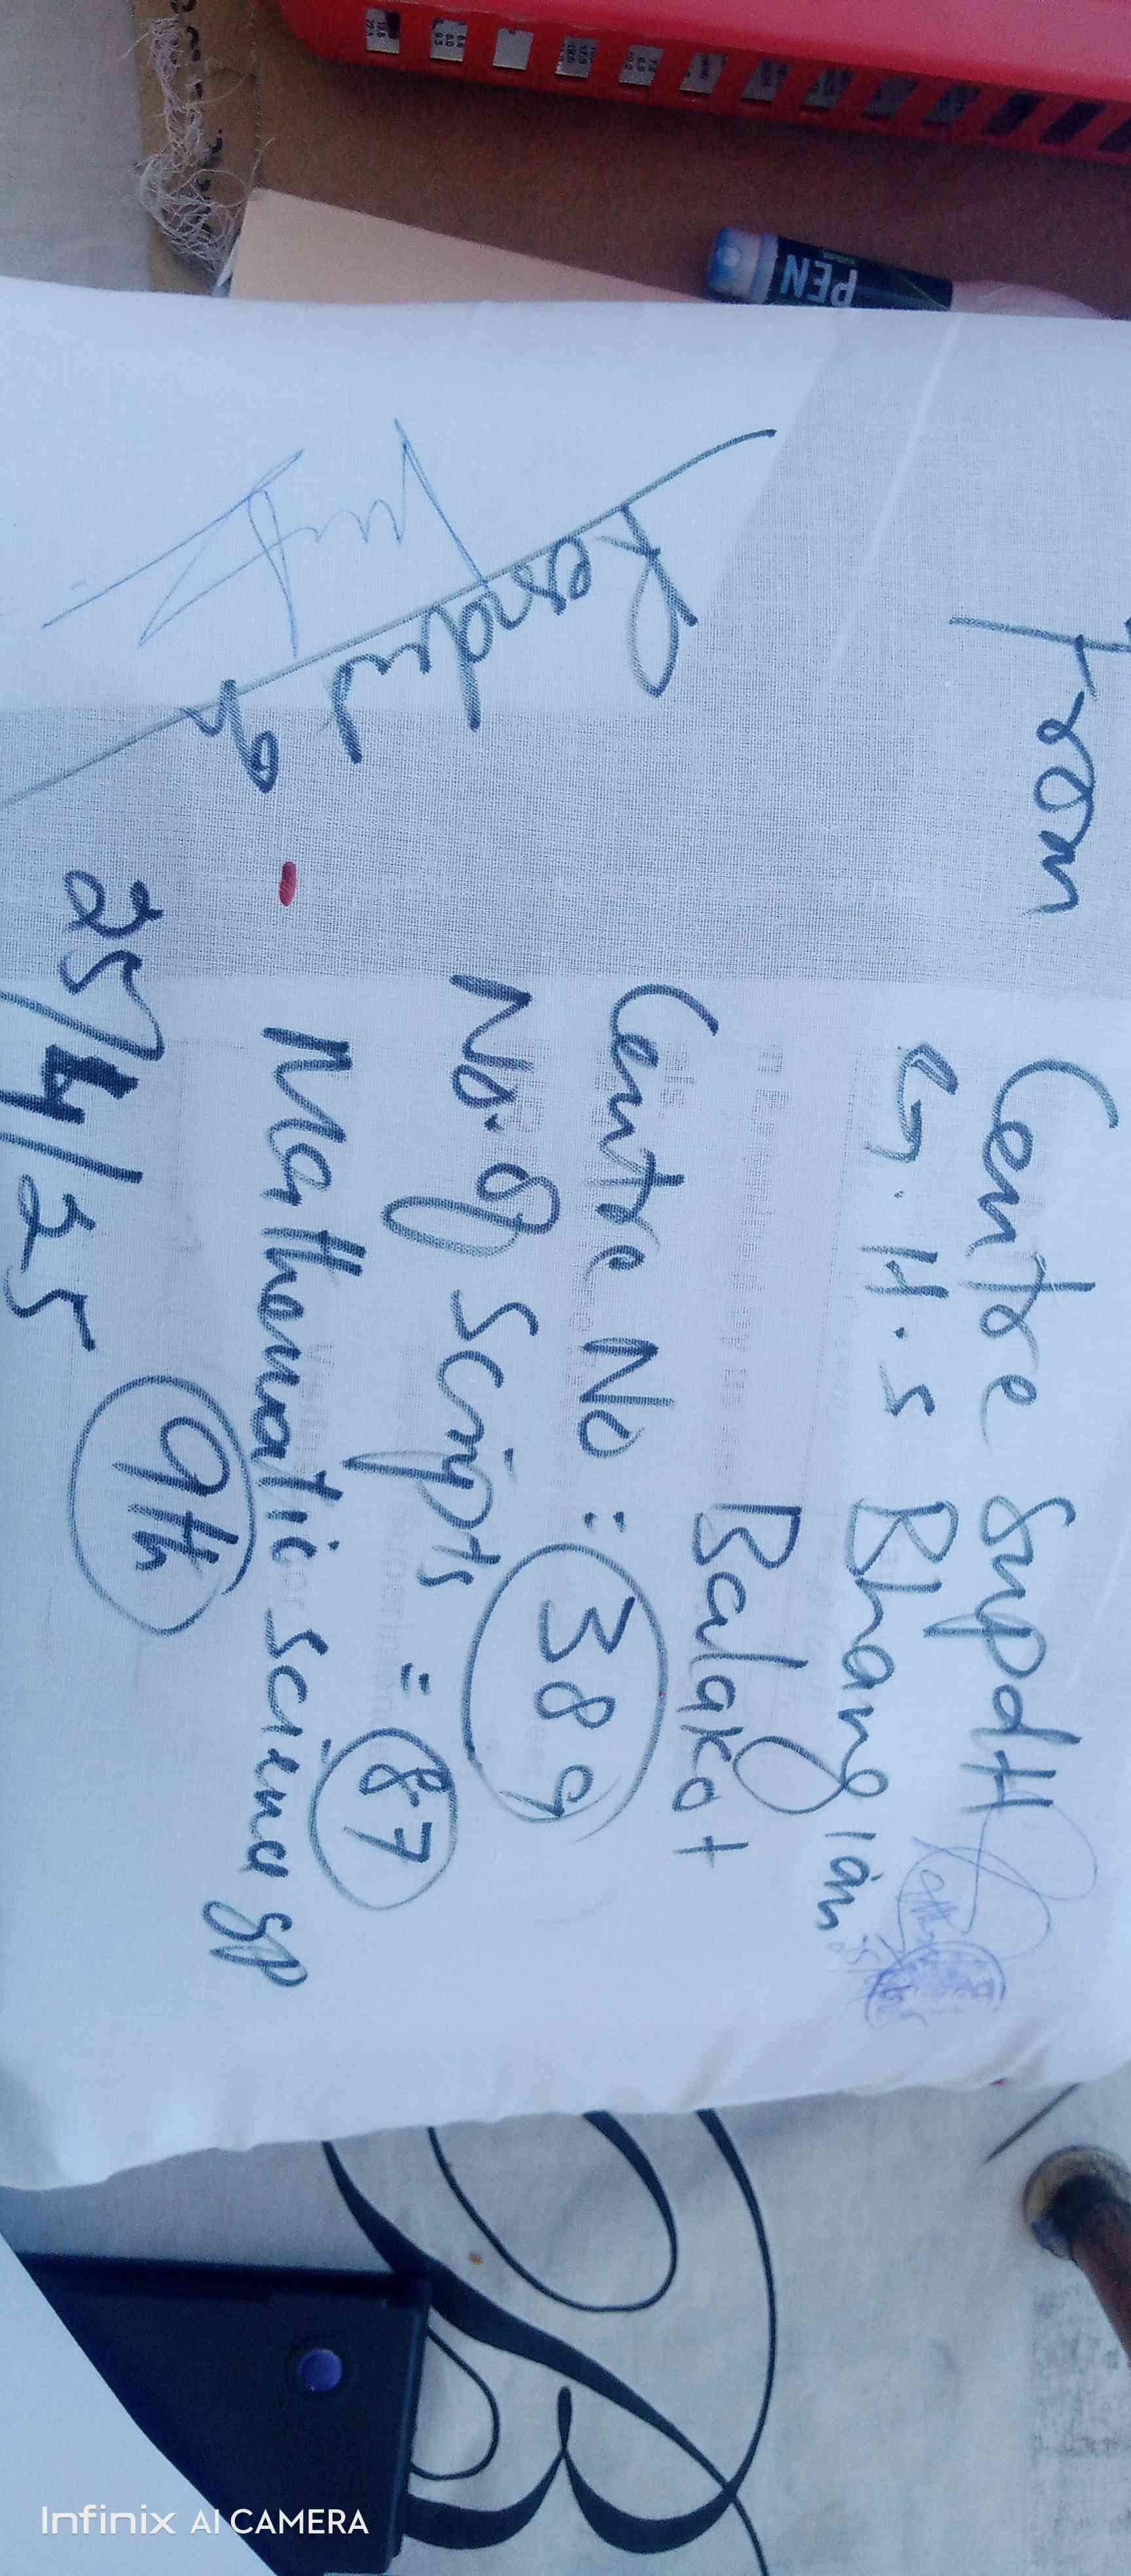 From
Centre Supdtt
G.H.S Bhangian
Balakot
Centre No: 389
No. of Scripts = 87
Mathematic Science gp
25/4/25 9th
PEN
Infinix AI CAMERA